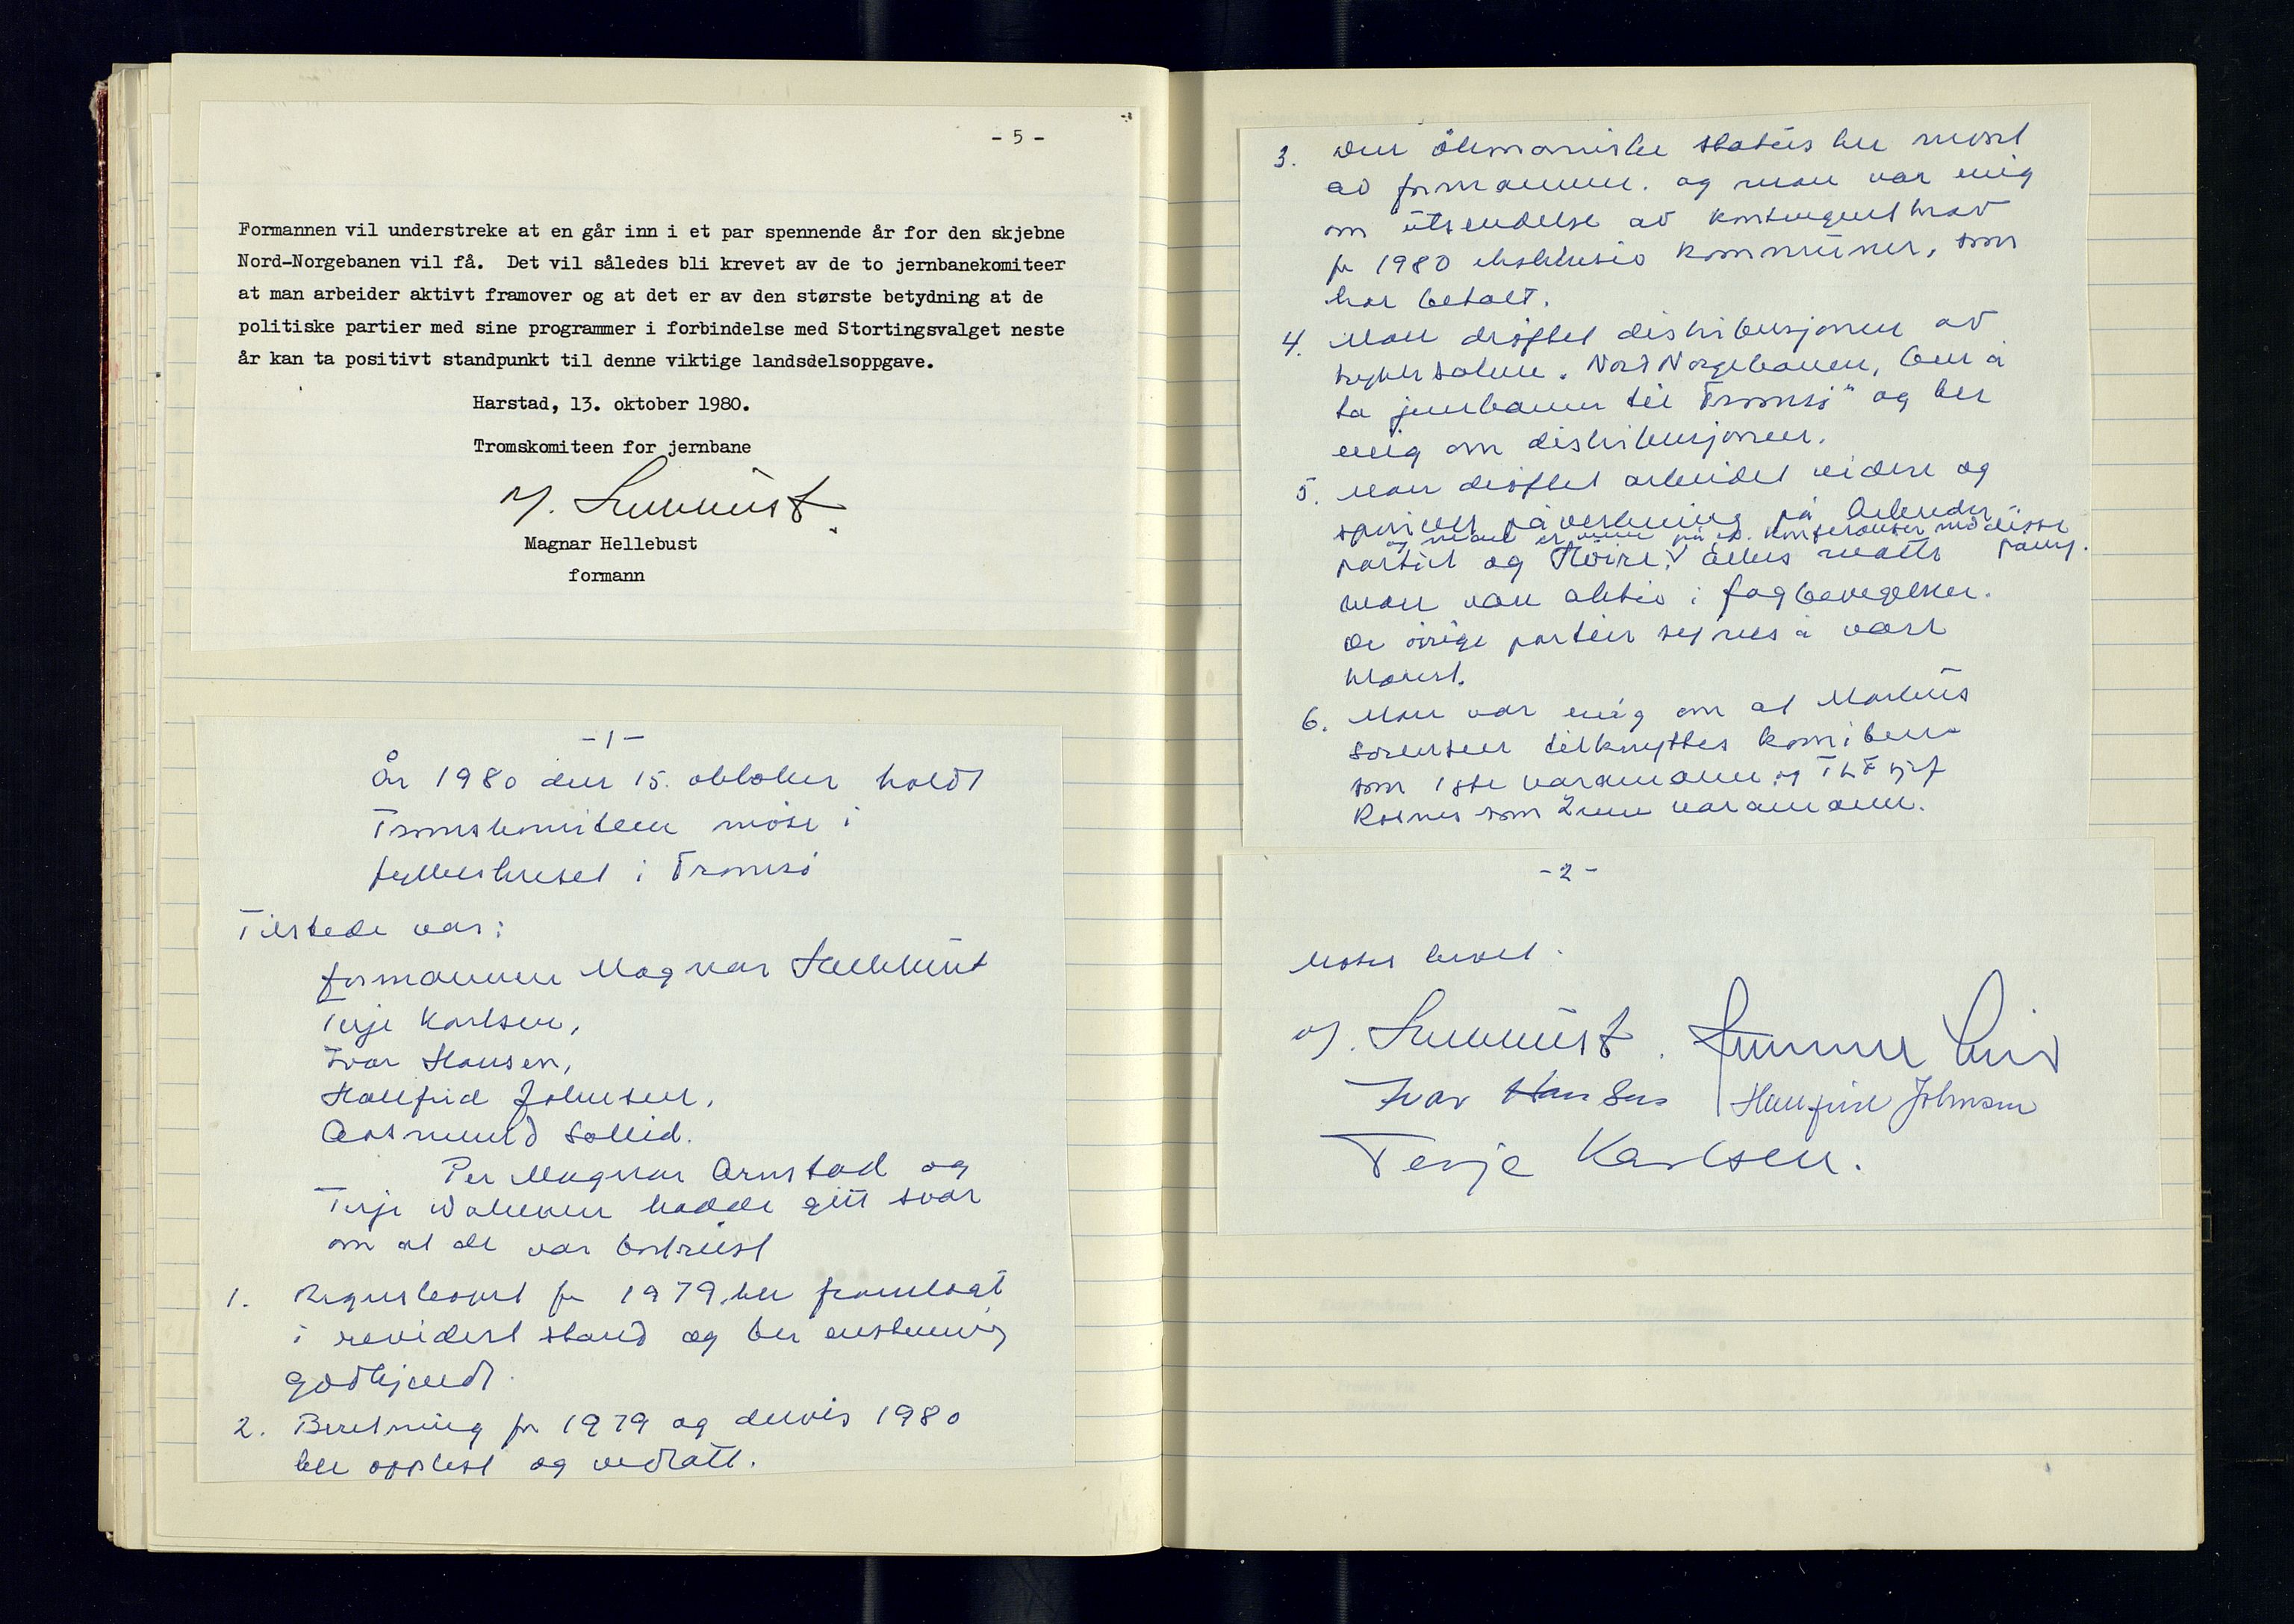 - 5 -
Formannen vil understreke at en går inn i et par spennende år for den skjebne
Nord-Norgebanen vil få. Det vil således bli krevet av de to jernbanekomiteer
at man arbeider aktivt framover og at det er av den største betydning at de
politiske partier med sine programmer i forbindelse med Stortingsvalget neste
år kan ta positivt standpunkt til denne viktige landsdelsoppgave.
Harstad, 13. oktober 1980.
Tromskomiteen for jernbane
M. Hellebust
Magnar Hellebust
formann
- 1 -
År 1980 den 15. oktober holdt
Tromskomiteen møte i
fylkeshuset i Tromsø
Tilstede var:
formannen Magnar Hellebust
Terje Karlsen,
Ivar Hansen,
Hallfrid Johnsen,
Aasmund Sollid.
Per Magnar Arnstad og
Terje Walnum hadde gitt svar
om at de var bortreist
1. Regnskapet for 1979 ble framlagt
i revidert stand og ble enstemmig
godkjendt.
2. Beretning for 1979 og delvis 1980
ble opplest og vedtatt.
3. Den økonomiske status ble
av formannen. og man var enig
om utsendelse av kontingentkrav
for 1980 eksklusiv kommuner, som
har betalt.
4. Man drøftet distribusjonen av
Nord Norgebanen, ben å
ta jernbanen til Tromsø" og ble
enig om distribusjonen.
5. Man drøftet arbeidet videre og
påvirkning på Arbeider
og konferanser med disse
partiet og Høire. V Ellers måtte
man være aktiv i fagbevegelsen.
De øvrige partier synes å være
6. Man var enig om at Markus
Sørensen tilknyttes komiteen
som 1ste varamann og
som 2nen varamann.
- 2 -
Møtet hevet.
M. Hellebust.
Ivar Hansen Hallfrid Johnsen
Terje Karlsen.